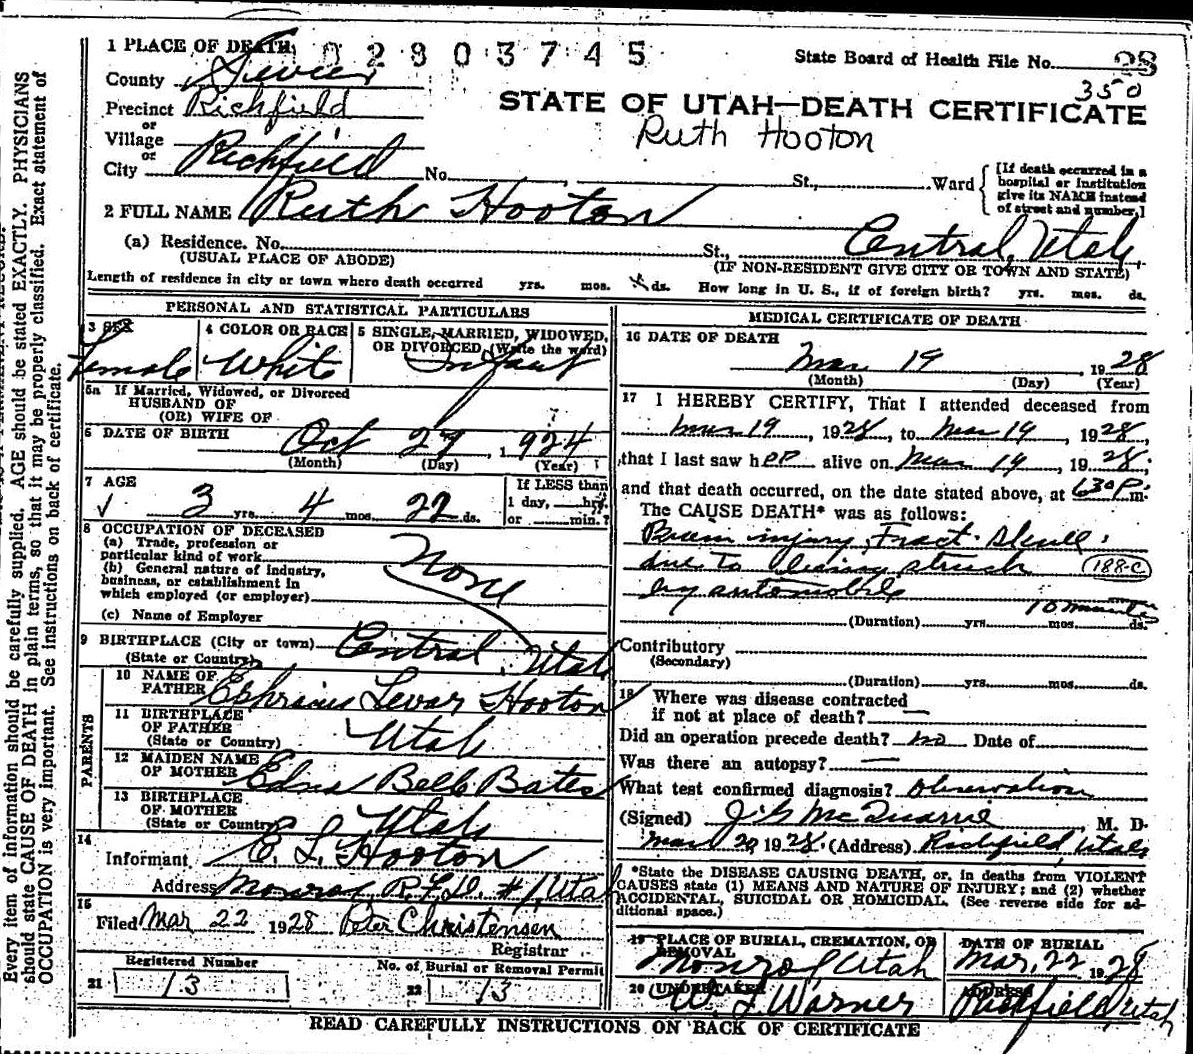 Every item of information should be carefully supplied. AGE should be stated EXACTLY. PHYSICIANS
should state CAUSE OF DEATH in plain terms, so that it may be properly classified. Exact statement of
OCCUPATION is very important. See instructions on back of certificate.
1 PLACE OF DEATH
02803745
State Board of Health File No. 28
County Sevier
350
Precinct Richfield
STATE OF UTAH—DEATH CERTIFICATE
or
Ruth Hooton
Village
or
City Richfield No. St., Ward
[If death occurred in a
hospital or institution
give its NAME instead
of street and number.]
2 FULL NAME Ruth Hooton
(a) Residence. No. St., Central, Utah.
(USUAL PLACE OF ABODE) (IF NON-RESIDENT GIVE CITY OR TOWN AND STATE)
Length of residence in city or town where death occurred yrs. mos. ds. How long in U. S., if of foreign birth? yrs. mos. ds.
PERSONAL AND STATISTICAL PARTICULARS
3 SEX 4 COLOR OR RACE 5 SINGLE, MARRIED, WIDOWED,
OR DIVORCED, (Write the word)
Female White Infant
5a If Married, Widowed, or Divorced
HUSBAND OF
(OR) WIFE OF
6 DATE OF BIRTH Oct 27, 1924
(Month) (Day) (Year)
7 AGE If LESS than
1 day, hrs.
3 yrs. 4 mos. 22 ds. or min.?
8 OCCUPATION OF DECEASED
(a) Trade, profession or
particular kind of work
(b) General nature of industry,
business, or establishment in
which employed (or employer)
None
(c) Name of Employer
9 BIRTHPLACE (City or town) Central, Utah
(State or Country)
PARENTS
10 NAME OF
FATHER Ephraim Levar Hooton
11 BIRTHPLACE
OF FATHER Utah
(State or Country)
12 MAIDEN NAME
OF MOTHER Edna Bell Bates
13 BIRTHPLACE
OF MOTHER Utah
(State or Country)
14
Informant E. L. Hooton
Address Monroe R.F.D. #1, Utah
15
Filed Mar 22 1928 Peter Christensen
Registrar
Registered Number No. of Burial or Removal Permit
21 13 22 13
MEDICAL CERTIFICATE OF DEATH
16 DATE OF DEATH
Mar 19, 1928
(Month) (Day) (Year)
17 I HEREBY CERTIFY, That I attended deceased from
Mar 19, 1928, to Mar 19, 1928,
that I last saw her alive on Mar 19, 1928.
and that death occurred, on the date stated above, at 630 P.m.
The CAUSE DEATH* was as follows:
Brain injury, Fract. Skull.
due to being struck 188-C
by automobile
10 minutes
(Duration) yrs. mos. ds.
Contributory
(Secondary)
(Duration) yrs. mos. ds.
18 Where was disease contracted
if not at place of death? —
Did an operation precede death? no Date of
Was there an autopsy? —
What test confirmed diagnosis? Observation
(Signed) J. G. McQuarrie, M. D.
Mar 20, 1928. (Address) Richfield, Utah
*State the DISEASE CAUSING DEATH, or, in deaths from VIOLENT
CAUSES state (1) MEANS AND NATURE OF INJURY; and (2) whether
ACCIDENTAL, SUICIDAL OR HOMICIDAL. (See reverse side for ad-
ditional space.)
19 PLACE OF BURIAL, CREMATION, OR
REMOVAL
Monroe, Utah
DATE OF BURIAL
Mar. 22 1928
20 (UNDERTAKER
W. L. Warner
ADDRESS
Richfield, Utah
READ CAREFULLY INSTRUCTIONS ON BACK OF CERTIFICATE